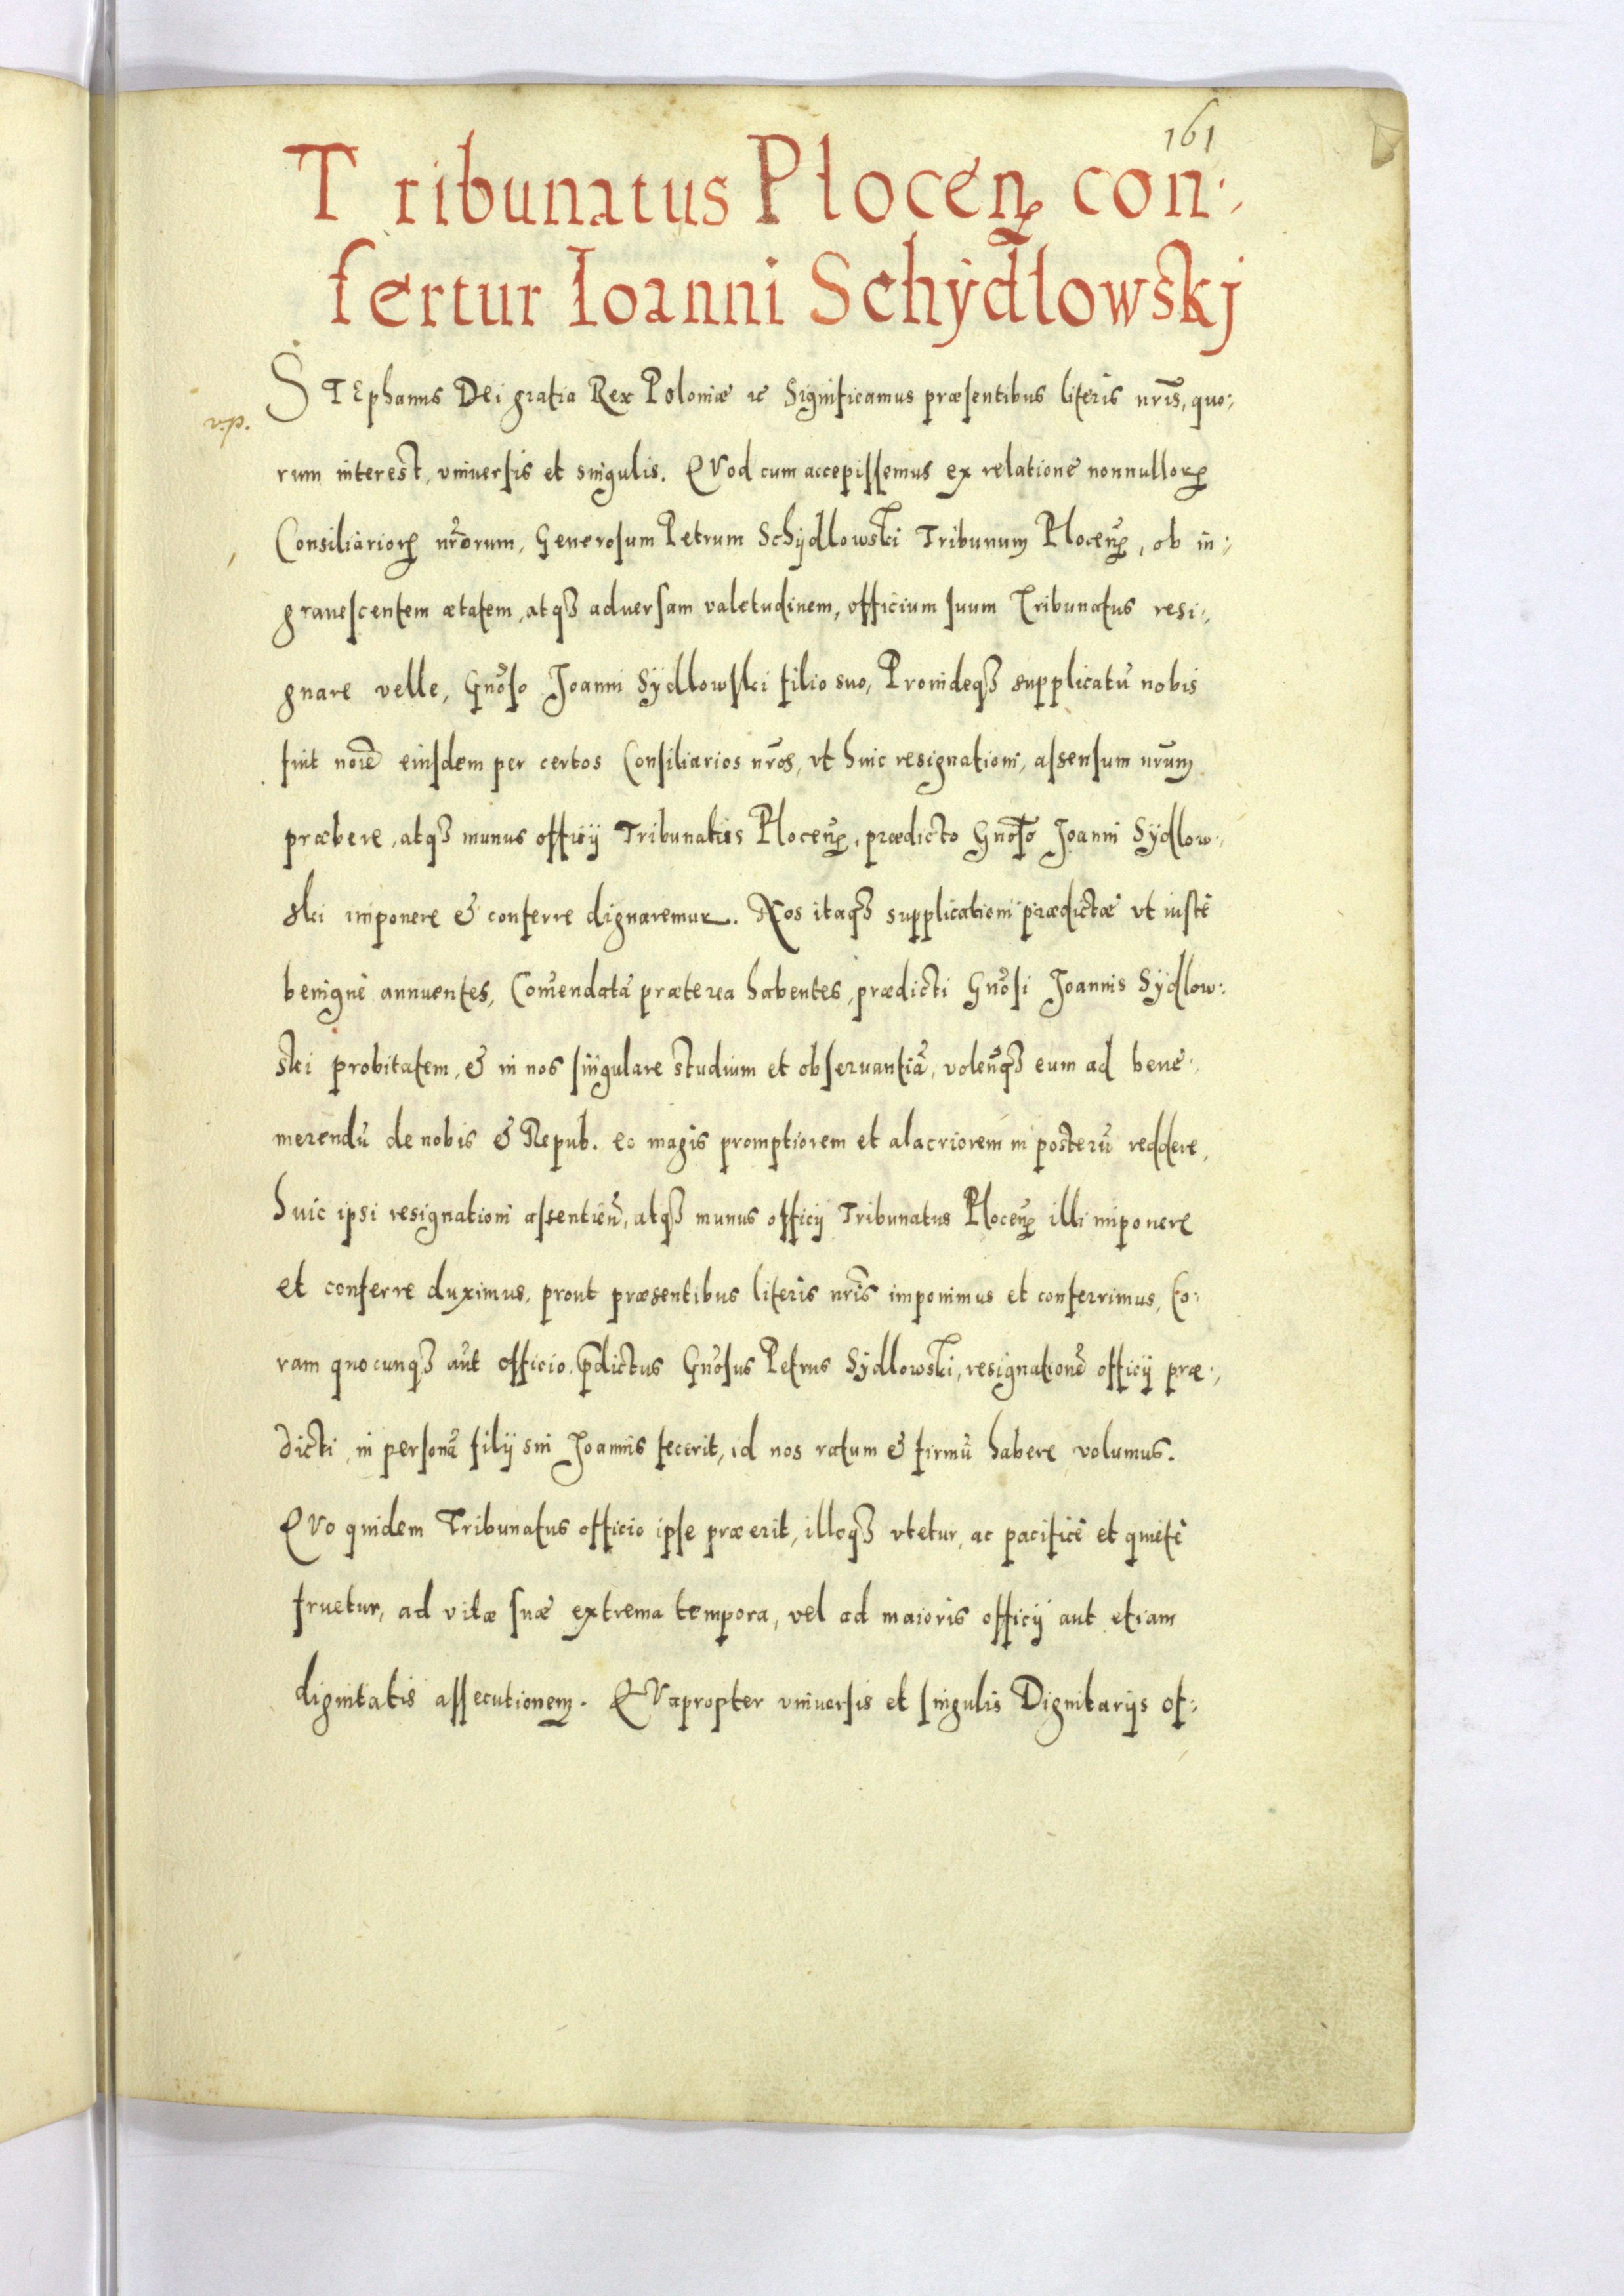 161
Tribunatus Płocen̄ con-
fertur Ioanni Schÿdłowskj
STEphanus DEi gratia Rex Poloniæ ꝛc Significamus præsentibus literis nr̄is, quo-
rum interest, vniuersis et singulis. QVod cum accepissemus ex relatione nonnulloꝝ
Consiliarioꝝ nr̄orum, Generosum Petrum Schÿdlowski Tribunum Płocen̄, ob in-
grauescentem ætatem, atqꝫ aduersam valetudinem, officium suum Tribunatus resi-
gnare velle, Gnōso Joanni Sÿdlowski filio suo, Proindeqꝫ supplicatū nobis
fuit noīe eiusdem per certos Consiliarios nr̄os, vt huic resignationi, assensum nr̄um
præbere, atqꝫ munus officij Tribunatus Płocen̄, prædicto Gnōso Joanni Sÿdlow-
ski imponere & conferre dignaremur. Nos itaqꝫ supplicationi prædictæ vt iustè
benignè annuentes, Com̄endatā præterea habentes, prædicti Gnōsi Joannis Sÿdlow-
ski probitatem, & in nos singulare studium et obseruantiā, volen̄qꝫ eum ad bene-
merendū de nobis & Repub. eo magis promptiorem et alacriorem in posterū reddere,
huic ipsi resignationi assentien̄, atqꝫ munus officij Tribunatus Płocen̄ illi imponere
et conferre duximus, prout præsentibus literis nr̄is imponimus et conferrimus, Co-
ram quocunqꝫ aūt officio p̄dictus Gnōsus Petrus Sÿdlowski, resignationē officij præ-
dicti, in personā filij sui Joannis fecerit, id nos ratum & firmū habere volumus.
QVo quidem Tribunatus officio ipse præerit, illoqꝫ vtetur, ac pacificè et quietè
fruetur, ad vitæ suæ extrema tempora, vel ad maioris officij aut etiam
dignitatis assecutionem. QVapropter vniuersis et singulis Dignitarijs of-